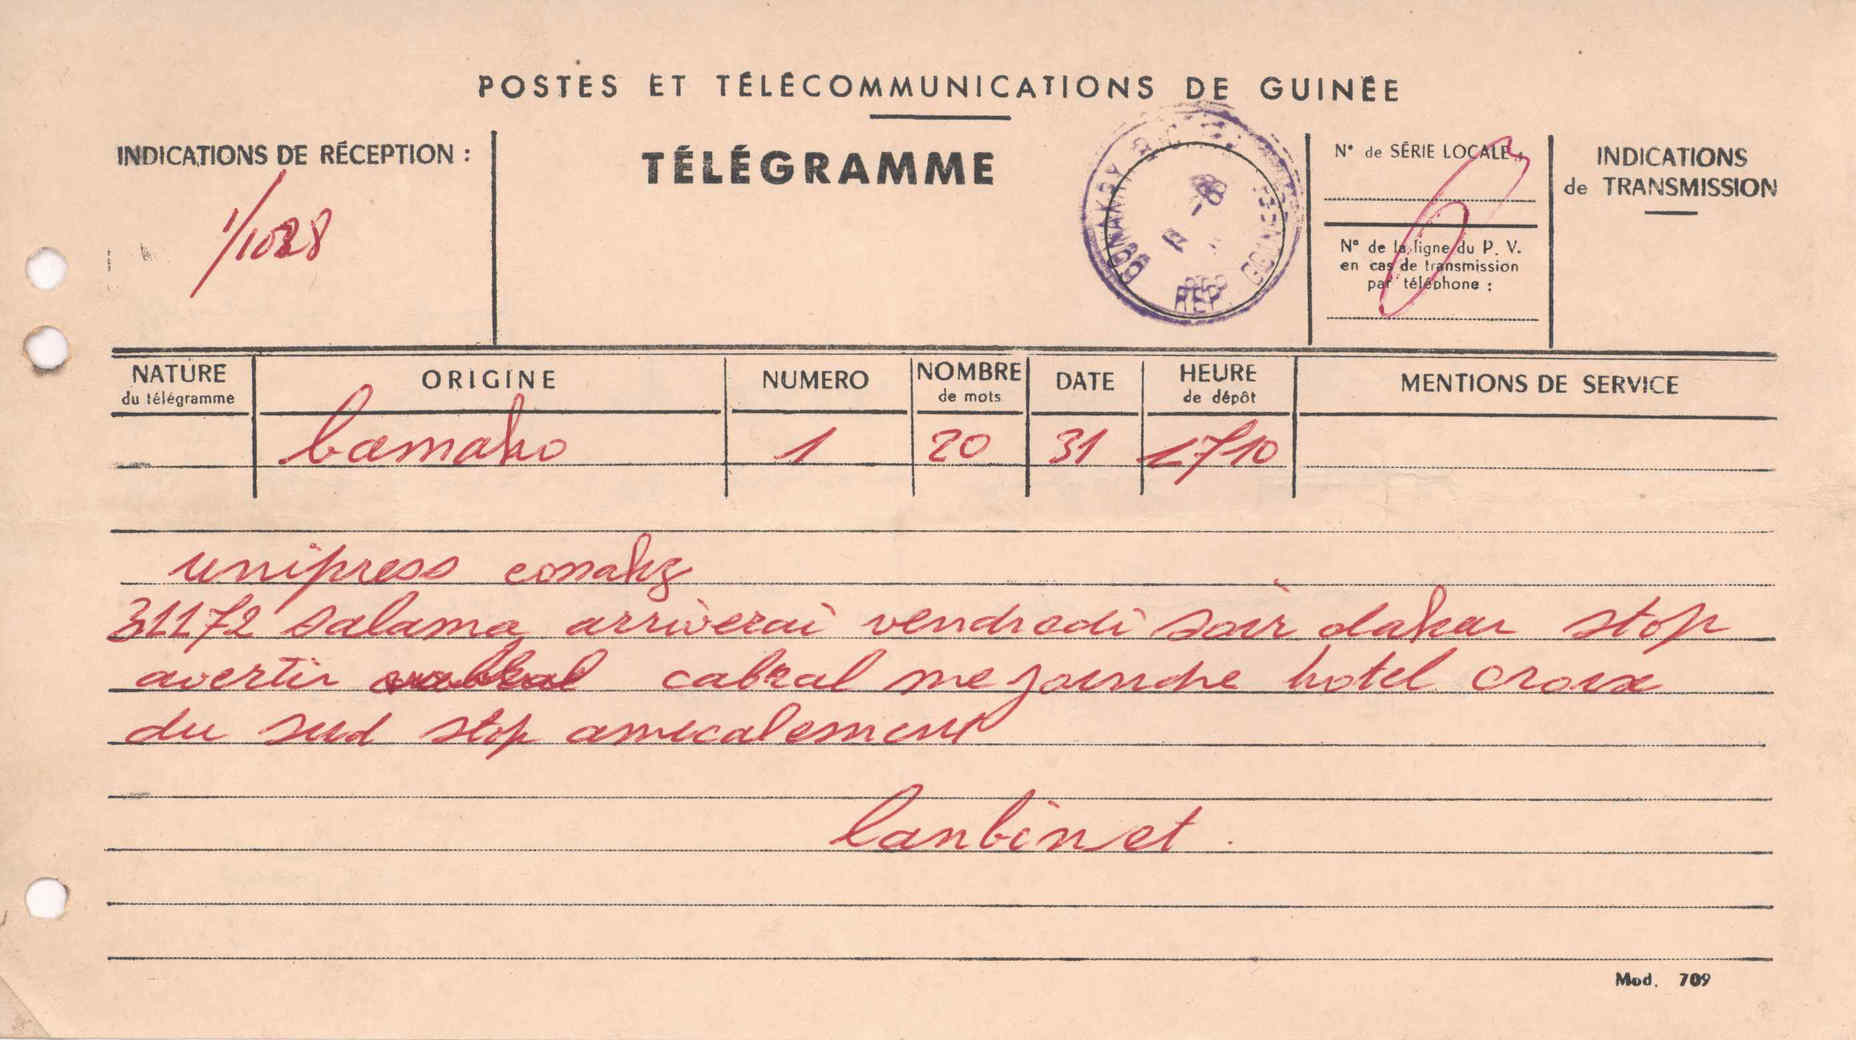 POSTES ET TÉLÉCOMMUNICATIONS DE GUINÉE
INDICATIONS DE RÉCEPTION :
1/1028
TÉLÉGRAMME
CONAKRY
REP. GUINEE
N° de SÉRIE LOCALE :
N° de la ligne du P. V.
en cas de transmission
par téléphone :
INDICATIONS
de TRANSMISSION
NATURE
du télégramme
ORIGINE
NUMERO
NOMBRE
de mots
DATE
HEURE
de dépôt
MENTIONS DE SERVICE
bamako 1 20 31 1710
unipress conaky
31172 salama arriverai vendredi soir dakar stop
avertir cabral me joindre hotel croix
du sud stop amicalement
lanbinet
Mod. 709